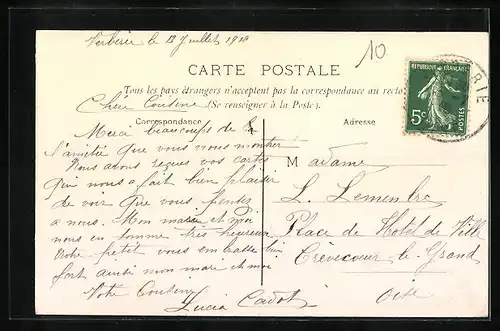 Verberie le 13 Juillet 1910
10
CARTE POSTALE
Tous les pays étrangers n'acceptent pas la correspondance au recto
Chère Cousine (Se renseigner à la Poste).
Correspondance
Adresse
REPUBLIQUE FRANÇAISE
5c
POSTES
RIE
Merci beaucoups de
L'amitié que vous nous montrer
Nous avons reçues vos cartes
qui nous a fait bien plaisir
de voir que vous pensez
a nous. Mon mari et moi
nous en somme très heureux
Votre petit vous embrasse bien
fort ainsi mon mari et moi
Votre Cousine
Lucia Cadot
Madame
L. Lemembre
Place de Hotel de Ville
Crèvecoeur le Grand
Oise